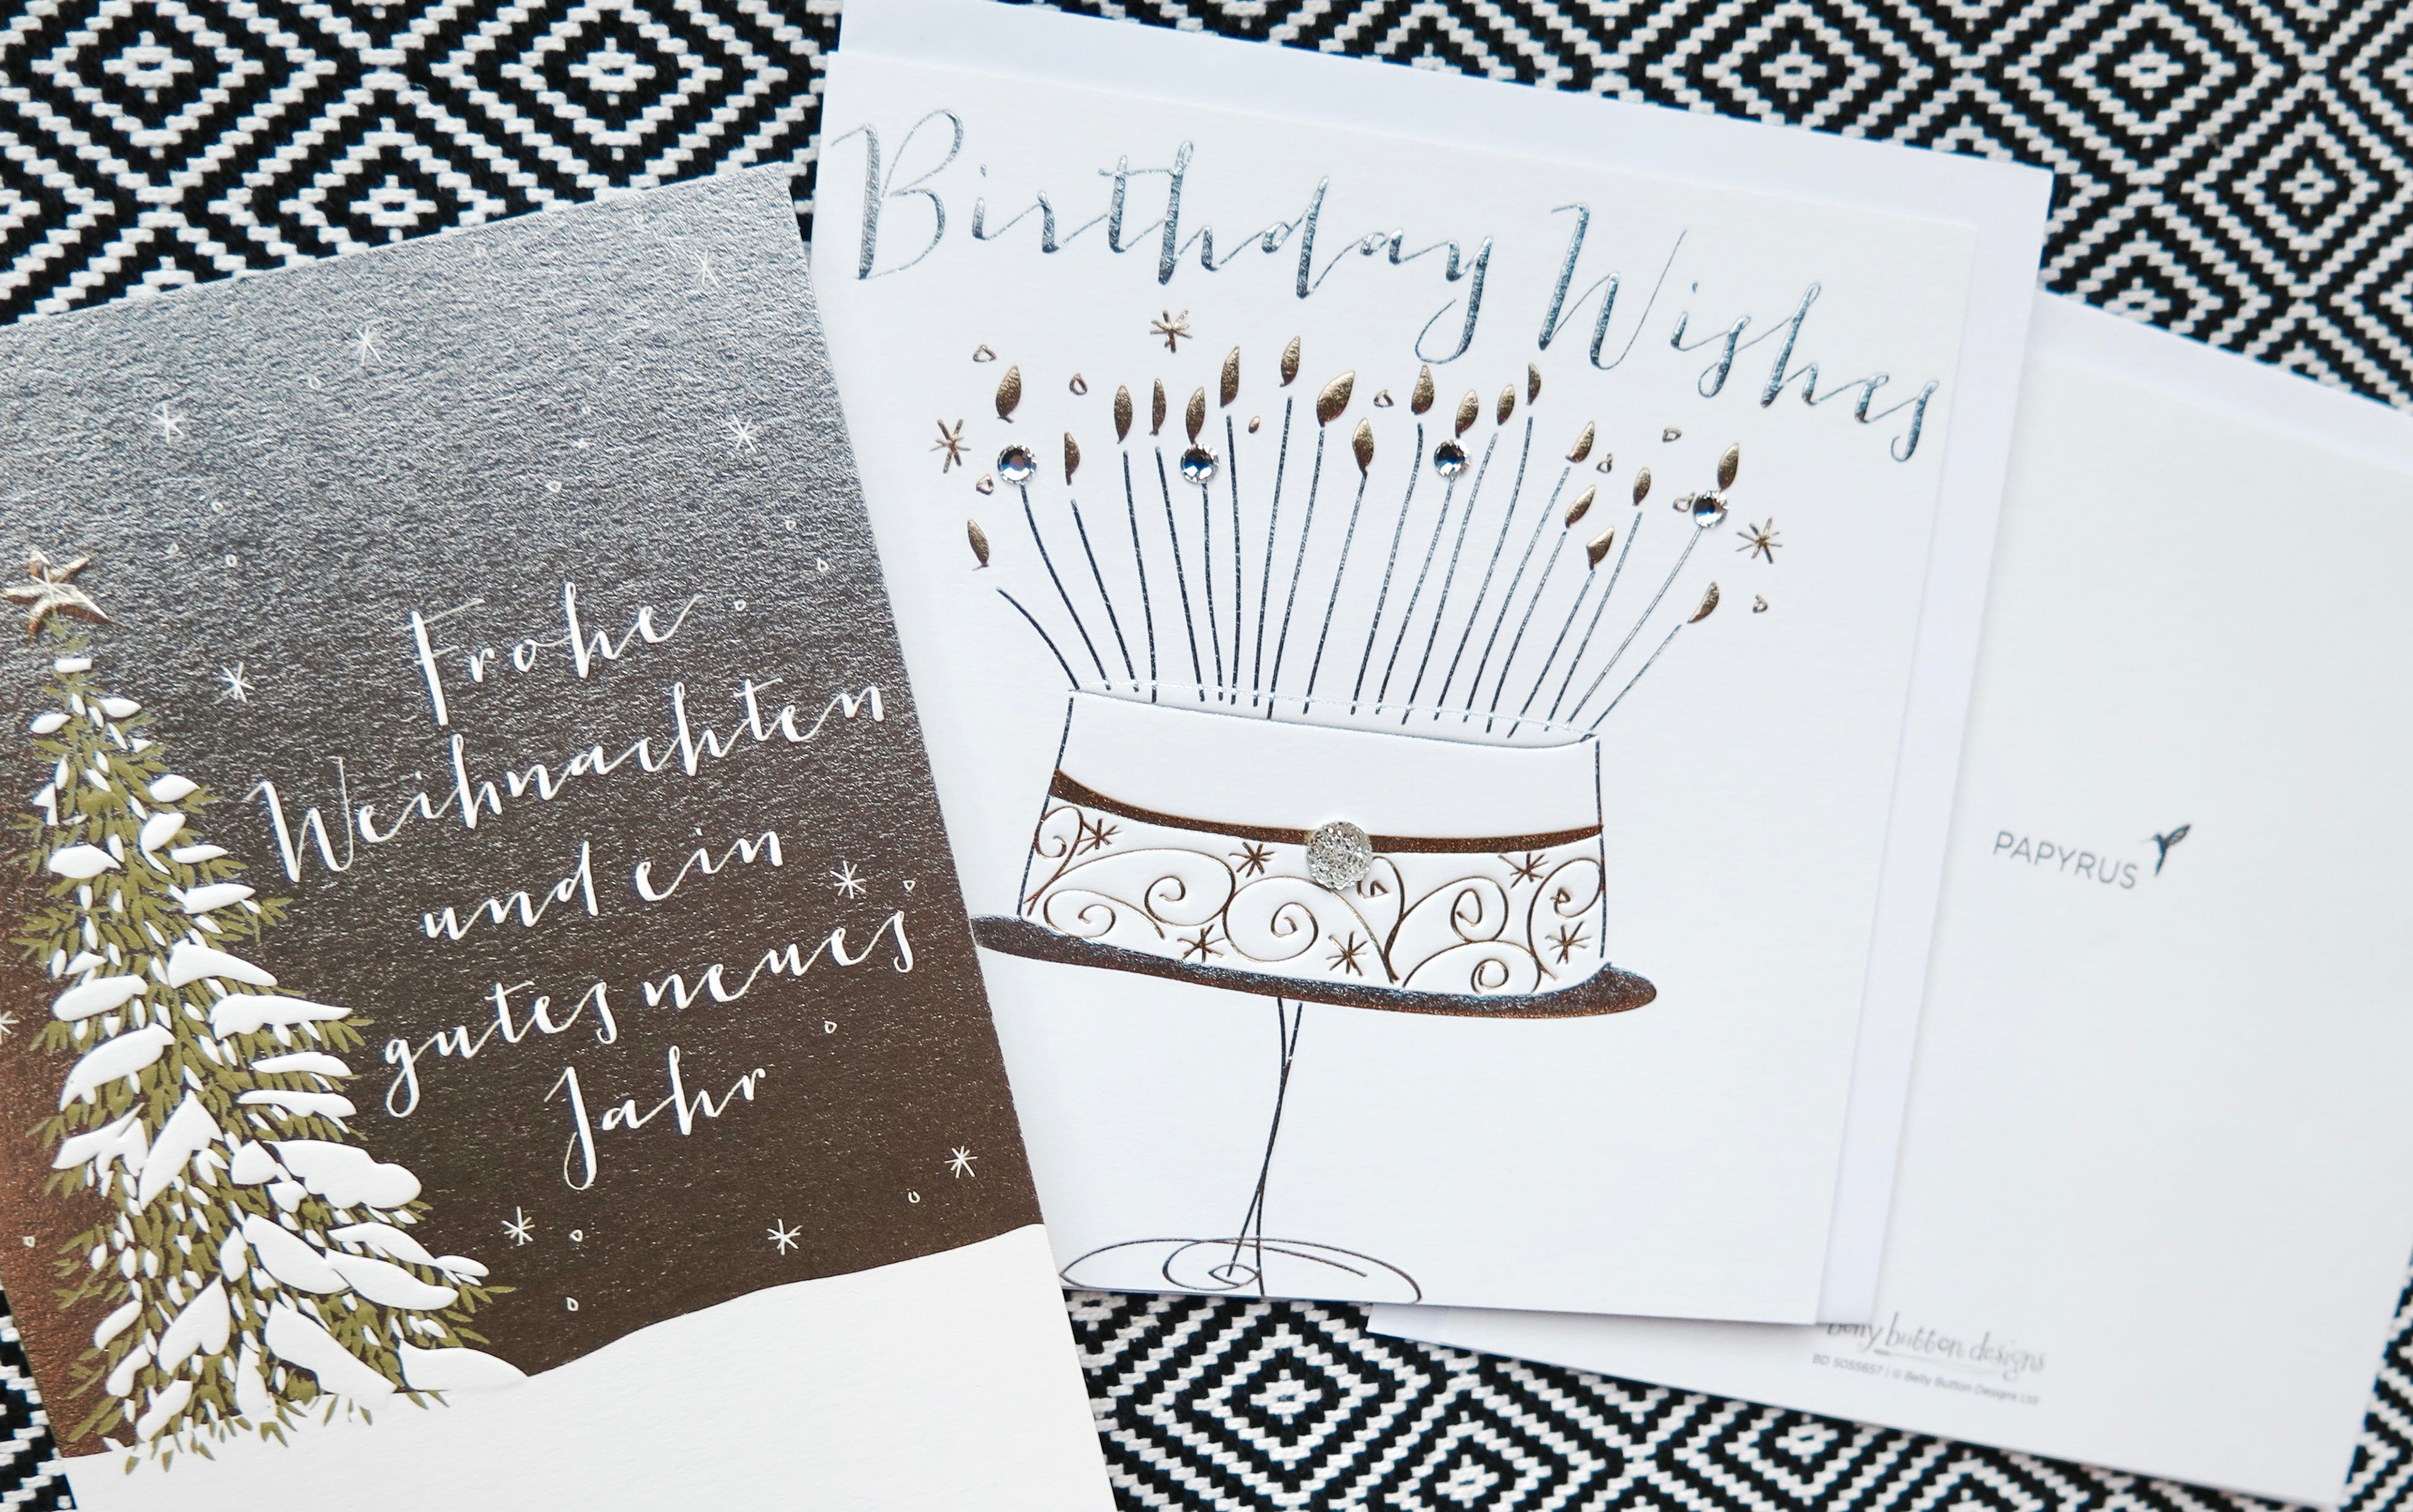 Frohe
Weihnachten
und ein
gutes neues
Jahr
Birthday Wishes
PAPYRUS
Belly button designs
BD 5055657 | © Belly Button Designs Ltd